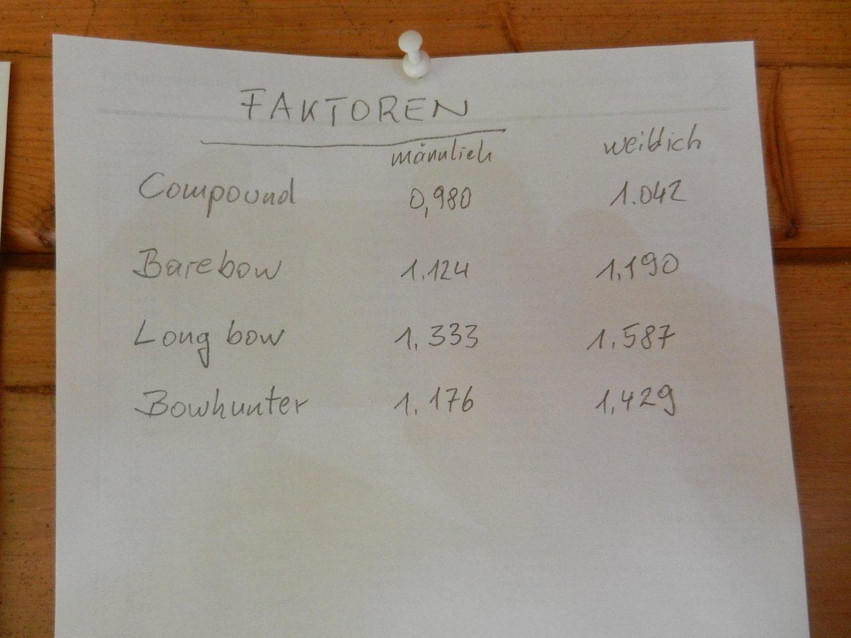 FAKTOREN
männlich weiblich
Compound 0,980 1.042
Barebow 1.124 1,190
Long bow 1,333 1,587
Bowhunter 1,176 1,429